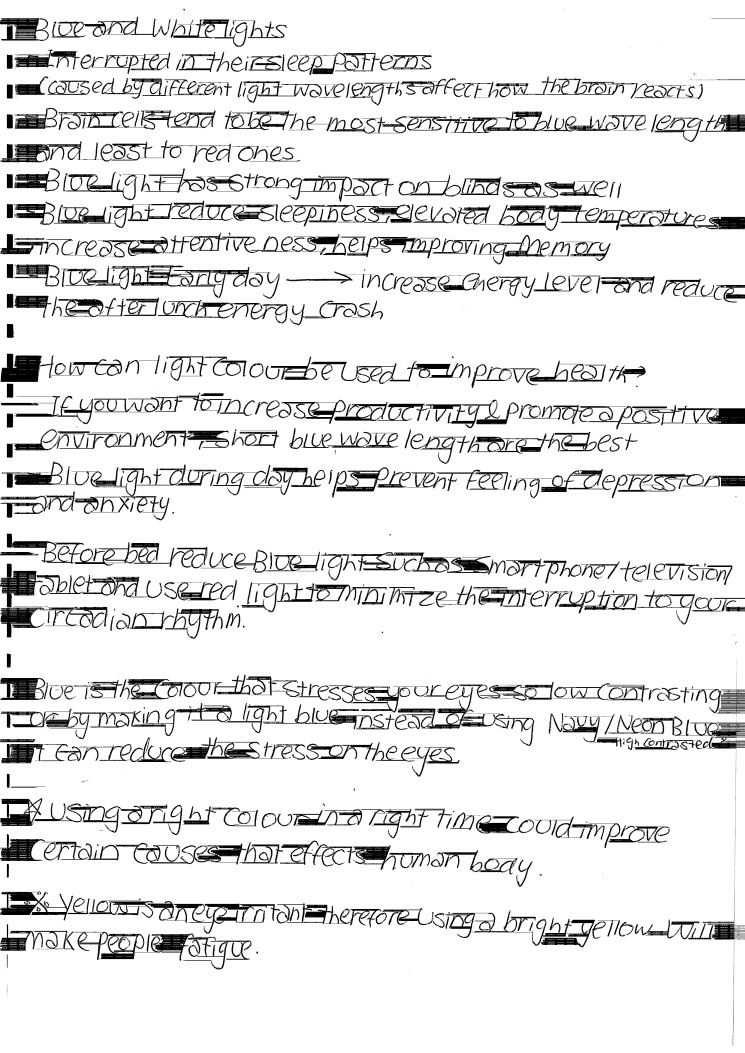 Blue and White lights
- Interrupted in their sleep patterns
(caused by different light wavelengths affect how the brain reacts)
- Brain cells tend to be the most sensitive to blue wave length
and least to red ones
- Blue light has strong impact on blinds as well
- Blue light reduce sleepiness, elevated body temperatures
increase attentiveness, helps improving Memory
- Blue light Early day → increase Energy level and reduce
the after lunch energy crash
How can light colour be used to improve health?
- If you want to increase productivity & promote a positive
environment, short blue wave length are the best
- Blue light during day helps prevent feeling of depression
and anxiety.
- Before bed reduce Blue light such as smartphone/television/
tablet and use red light to minimize the interruption to your
circadian rhythm.
Blue is the colour that stresses your eyes so low contrasting
or by making it a light blue instead of using Navy/Neon Blue
High contrasted
it can reduce the stress on the eyes.
☆ Using a right colour in a right time could improve
certain causes that effects human body.
※ Yellow is an eye irritant therefore using a bright yellow will
make people fatigue.